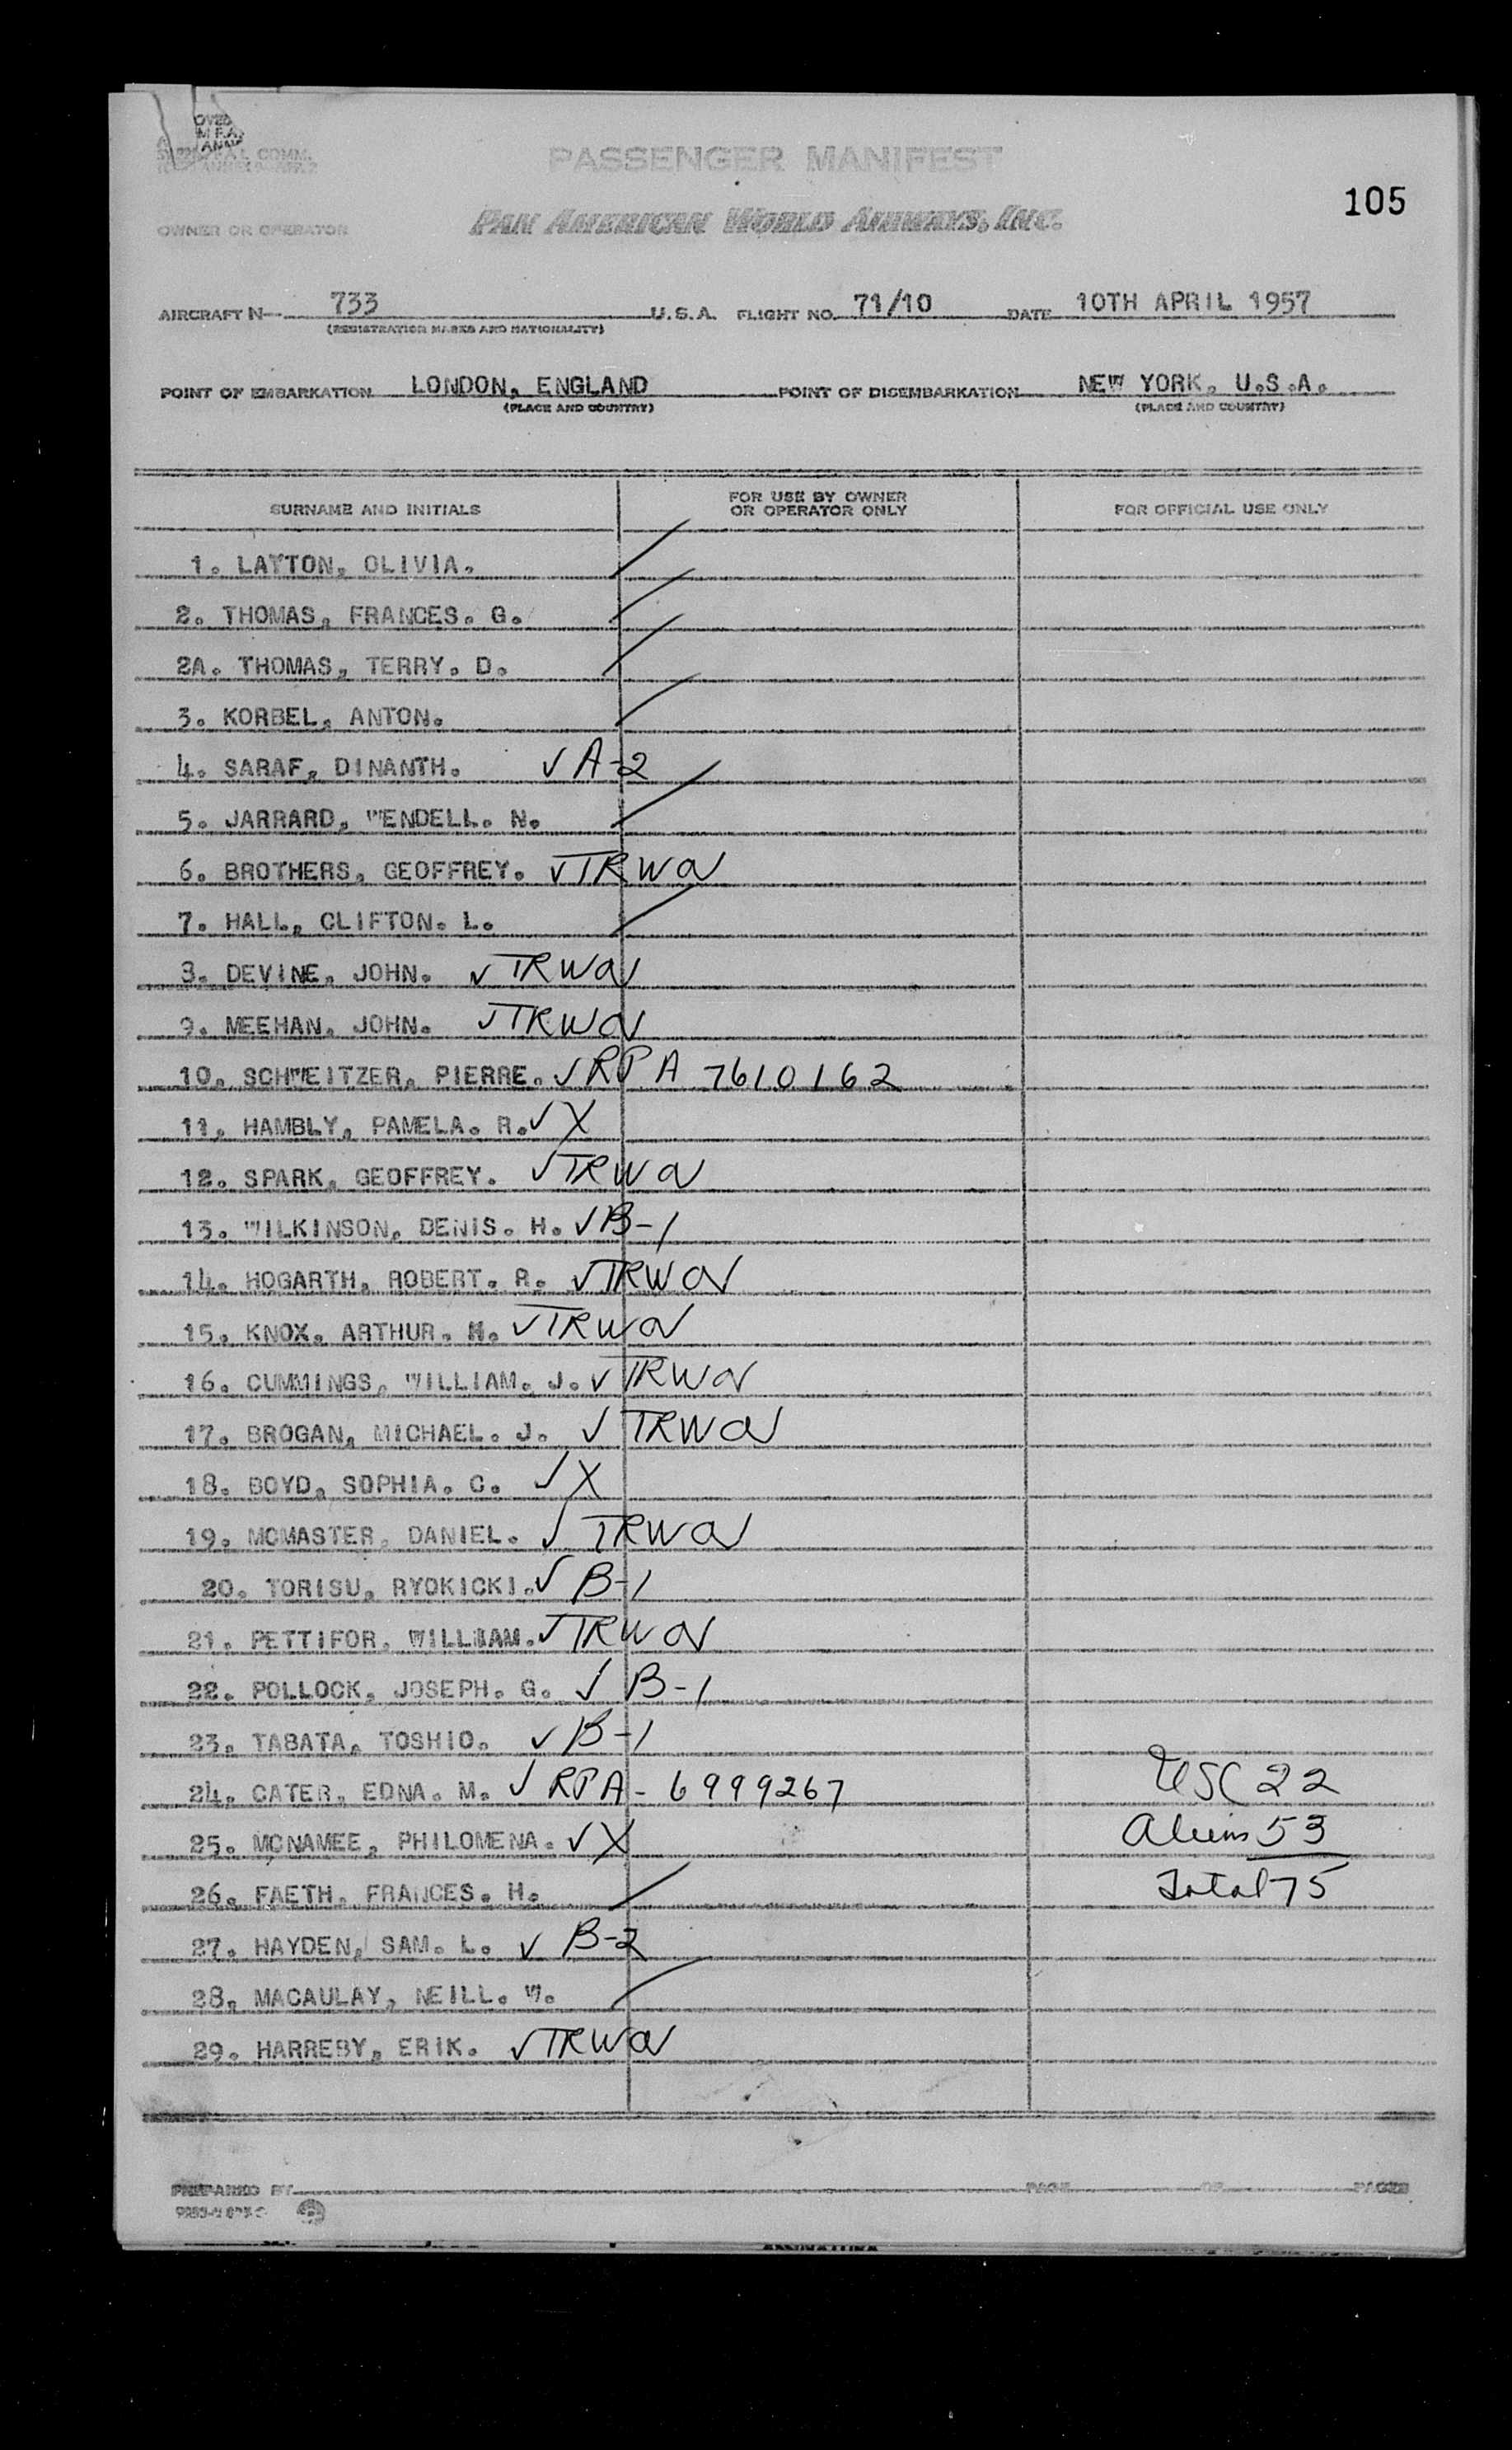 PASSENGER MANIFEST
105
OWNER OR OPERATOR
PAN AMERICAN WORLD AIRWAYS, INC.
AIRCRAFT N- 733 U.S.A. FLIGHT NO. 71/10 DATE 10TH APRIL 1957
(REGISTRATION MARKS AND NATIONALITY)
POINT OF EMBARKATION LONDON, ENGLAND POINT OF DISEMBARKATION NEW YORK, U.S.A.
(PLACE AND COUNTRY) (PLACE AND COUNTRY)
SURNAME AND INITIALS FOR USE BY OWNER OR OPERATOR ONLY FOR OFFICIAL USE ONLY
1. LAYTON, OLIVIA.
2. THOMAS, FRANCES. G.
2A. THOMAS, TERRY. D.
3. KORBEL, ANTON.
4. SARAF, DINANTH. √ A-2
5. JARRARD, WENDELL. N.
6. BROTHERS, GEOFFREY. √ TRWOV
7. HALL, CLIFTON. L.
8. DEVINE, JOHN. √ TRWOV
9. MEEHAN, JOHN. √ TRWOV
10. SCHWEITZER, PIERRE. √ RP A 7610162
11. HAMBLY, PAMELA. R. √ X
12. SPARK, GEOFFREY. √ TRWOV
13. WILKINSON, DENIS. H. √ B-1
14. HOGARTH, ROBERT. R. √ TRWOV
15. KNOX, ARTHUR. M. √ TRWOV
16. CUMMINGS, WILLIAM. J. √ TRWOV
17. BROGAN, MICHAEL. J. √ TRWOV
18. BOYD, SOPHIA. C. √ X
19. MCMASTER, DANIEL. √ TRWOV
20. TORISU, RYOKICKI. √ B-1
21. PETTIFOR, WILLIAM. √ TRWOV
22. POLLOCK, JOSEPH. G. √ B-1
23. TABATA, TOSHIO. √ B-1
24. CATER, EDNA. M. √ RPA - 6999267 USC 22
25. MCNAMEE, PHILOMENA. √ X Aliens 53
26. FAETH, FRANCES. H. Total 75
27. HAYDEN, SAM. L. √ B-2
28. MACAULAY, NEILL. W.
29. HARREBY, ERIK. √ TRWOV
PREPARED BY PAGE OF PAGES